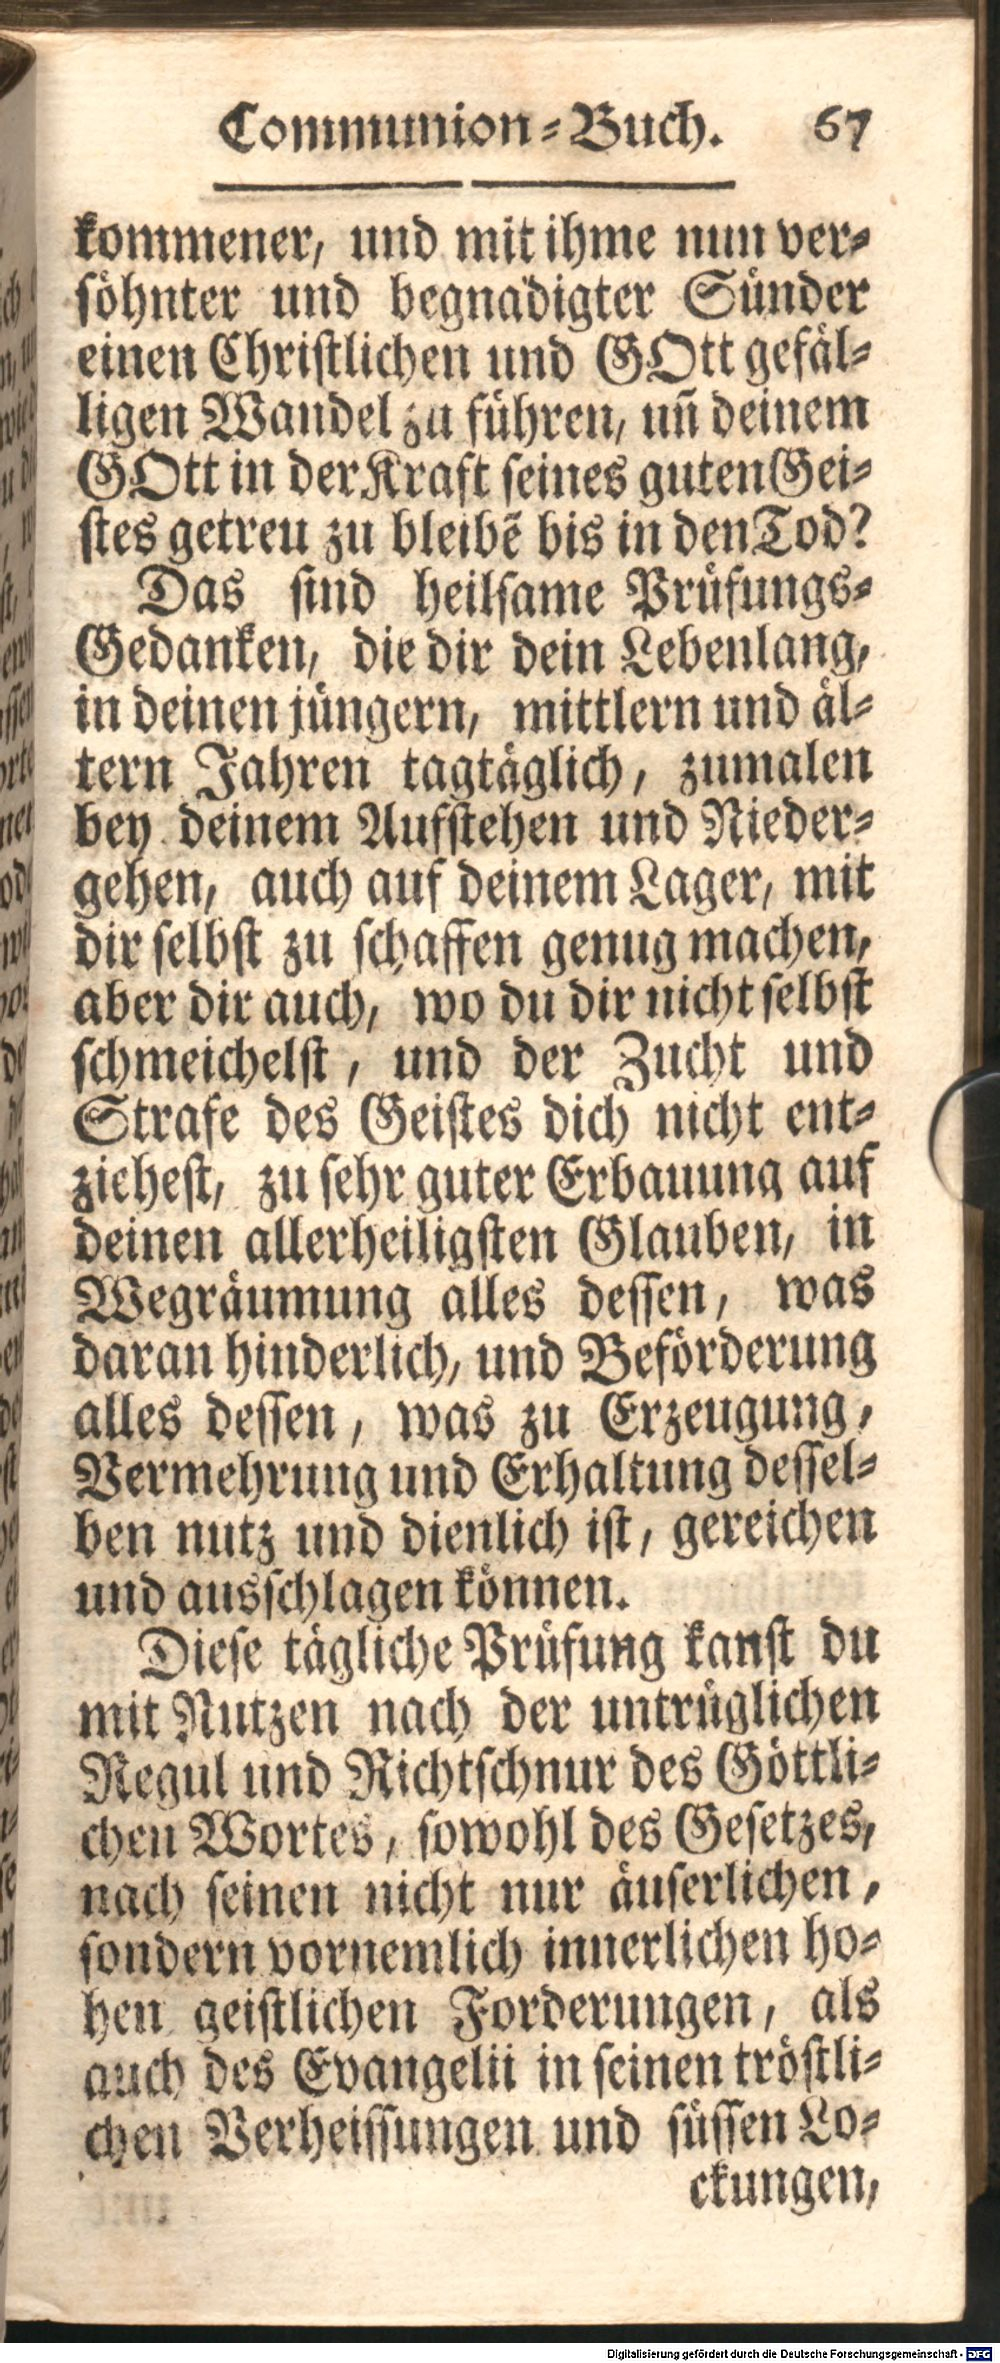 Communion⸗Buch. 67
kommener, und mit ihme nun ver⸗
ſöhnter und begnadigter Sünder
einen Chriſtlichen und GOtt gefäl⸗
ligen Wandel zu führen, un̄ deinem
GOtt in der Kraft ſeines guten Gei⸗
ſtes getreu zu bleibē bis in den Tod?
Das ſind heilſame Prüfungs⸗
Gedanken, die dir dein Lebenlang,
in deinen jüngern, mittlern und äl⸗
tern Jahren tagtäglich, zumalen
bey deinem Aufſtehen und Nieder⸗
gehen, auch auf deinem Lager, mit
dir ſelbſt zu ſchaffen genug machen,
aber dir auch, wo du dir nicht ſelbſt
ſchmeichelſt, und der Zucht und
Strafe des Geiſtes dich nicht ent⸗
zieheſt, zu ſehr guter Erbauung auf
deinen allerheiligſten Glauben, in
Wegräumung alles deſſen, was
daran hinderlich, und Beförderung
alles deſſen, was zu Erzeugung,
Vermehrung und Erhaltung deſſel⸗
ben nutz und dienlich iſt, gereichen
und ausſchlagen können.
Dieſe tägliche Prüfung kanſt du
mit Nutzen nach der untrüglichen
Regul und Richtſchnur des Göttli⸗
chen Wortes, ſowohl des Geſetzes,
nach ſeinen nicht nur äuſerlichen,
ſondern vornemlich innerlichen ho⸗
hen geiſtlichen Forderungen, als
auch des Evangelii in ſeinen tröſtli⸗
chen Verheiſſungen und ſüſſen Lo⸗
ckungen,
Digitalisierung gefördert durch die Deutsche Forschungsgemeinschaft - DFG